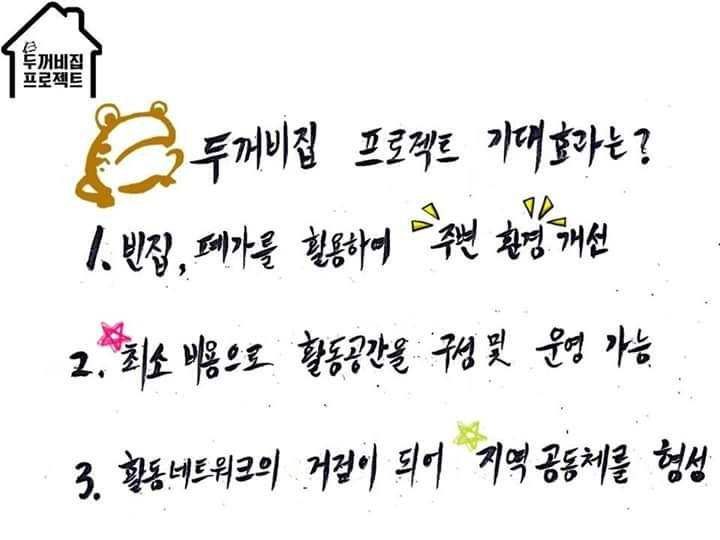 두꺼비집
프로젝트
두꺼비집 프로젝트 기대효과는?
1. 빈집, 폐가를 활용하여 주변 환경 개선
2. 최소 비용으로 활동공간을 구성 및 운영 가능
3. 활동네트워크의 거점이 되어 지역 공동체를 형성